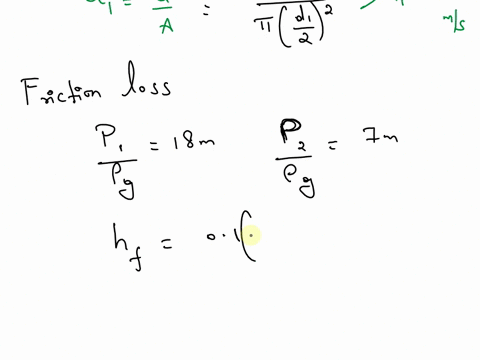 A = π(d1/2)² m/s
Friction loss
P1/ρg = 18m P2/ρg = 7m
hf = 0.1(